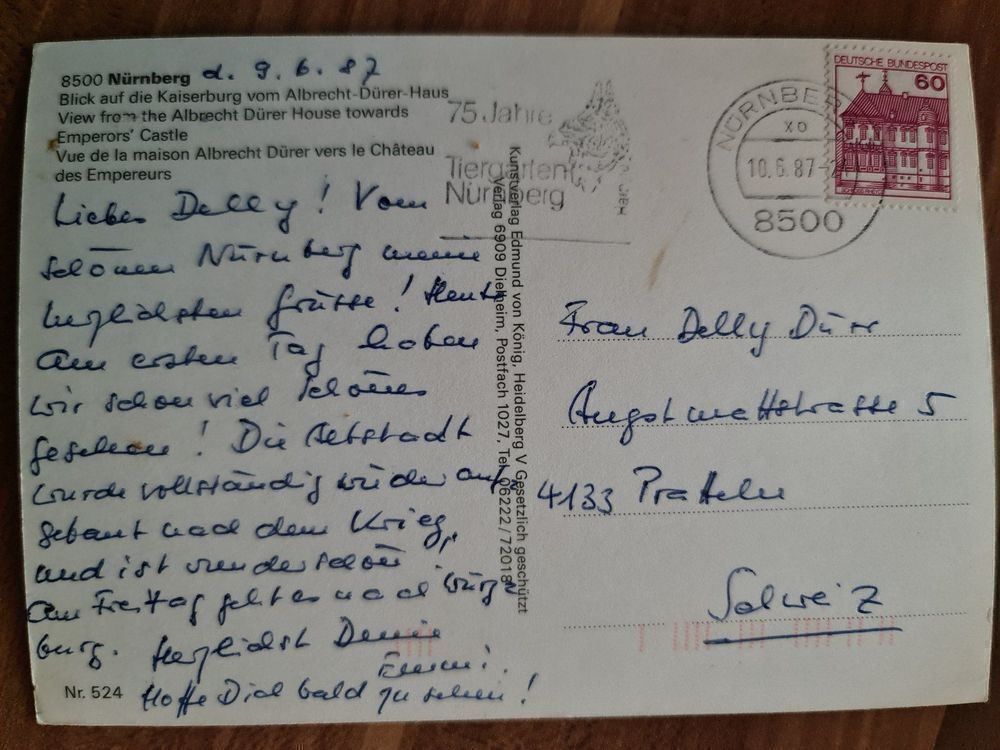 8500 Nürnberg d. 9.6.87
Blick auf die Kaiserburg vom Albrecht-Dürer-Haus
View from the Albrecht Dürer House towards
Emperors' Castle
Vue de la maison Albrecht Dürer vers le Château
des Empereurs
Liebes Delly! Vom
schönen Nürnberg meine
herzlichsten Grüsse! Heute
am ersten Tag haben
wir schon viel schönes
gesehen! Die Altstadt
wurde vollständig wieder auf-
gebaut nach dem Krieg,
und ist wunderschön.
Am Freitag geht es nach Würz-
burg. Herzlichst Deine
Emmi.
Hoffe Dich bald zu sehen!
Nr. 524
75 Jahre
Tiergarten
Nürnberg
Kunstverlag Edmund von König, Heidelberg V Gesetzlich geschützt
Verlag 6909 Dielheim, Postfach 1027, Tel. 06222/72018
NÜRNBERG
xo
10.6.87
8500
DEUTSCHE BUNDESPOST
60
Frau Delly Dürr
Augstmattstrasse 5
4133 Pratteln
Schweiz